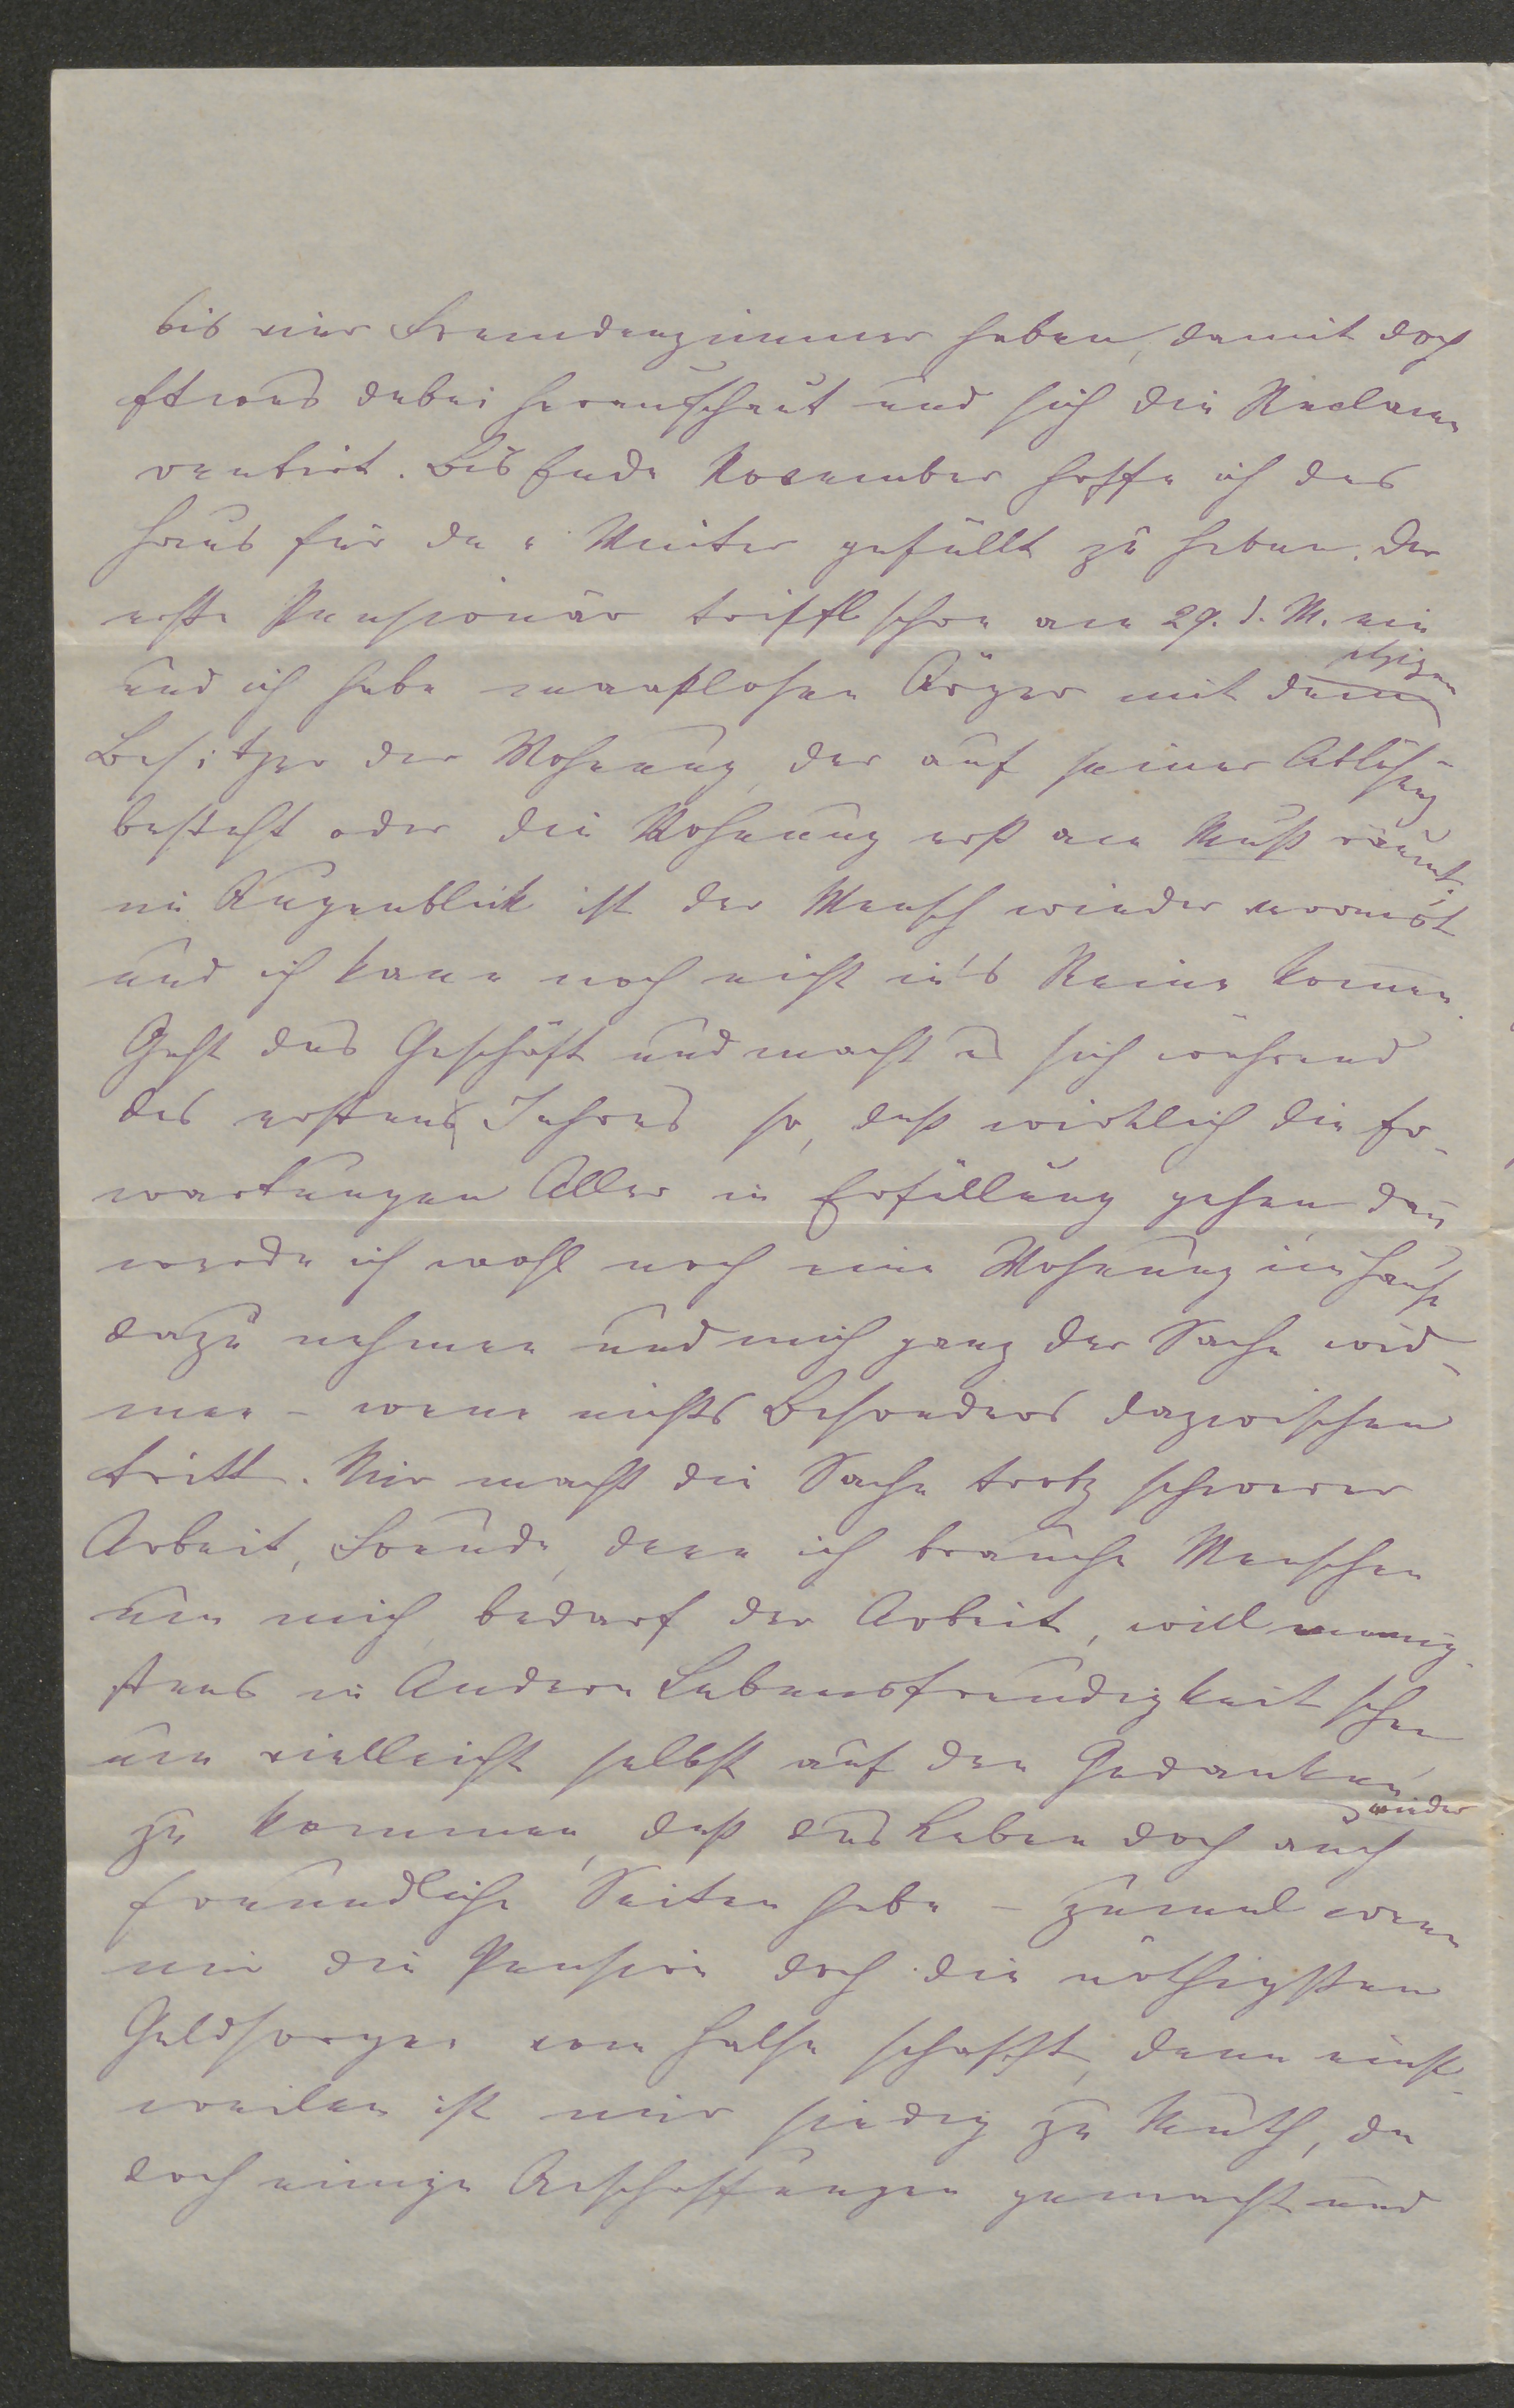 bis vier Fremdenzimmer haben, damit doch
Etwas dabei herausschaut und sich die Reclame
rentirt. Bis Ende November hoffe ich das
Haus für den Winter gefüllt zu haben. Der
erste Pensionär trifft schon am 29. d. M. ein
und ich habe maaßlosen Ärger mit dem jetzigen
Besitzer der Wohnung, der auf seiner Ablösung
besteht oder die Wohnung erst am Muß räumt.
im Augenblick ist der Mensch wieder verreist
und ich kann noch nicht in's Reine kommen.
Geht das Geschäft und macht es sich während
des erstens Jahres so, daß wirklich die Er-
wartungen Aller in Erfüllung gehen, dann
werde ich wohl noch eine Wohnung im Hause
dazu nehmen und mich ganz der Sache wid-
men – wenn nichts Besonders dazwischen
tritt. Mir macht die Sache trotz schwerer
Arbeit, Freude, denn ich brauche Menschen
um mich, bedarf der Arbeit, will wenig-
stens in Andern Lebensfreudigkeit sehen
um vielleicht selbst auf den Gedanken
zu kommen, daß das Leben doch auch wieder
freundliche Seiten habe – zumal wenn
mir die Pension doch die nöthigsten
Geldsorgen vom Halse schafft, denn einst-
weilen ist mir zu Muth, da
doch einige Anschaffungen gemacht und